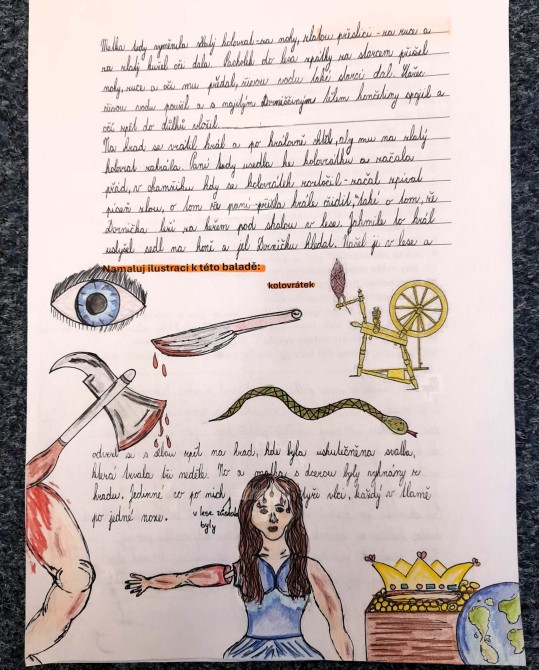 Matka tedy vyměnila zlatý kolovrat za nohy, zlatou přeslici - za ruce a
za zlatý kužel oči dala. Pachole do lesa zpátky za starcem přišel
nohy, ruce a oči mu předal, živou vodu také starci dal. Stařec
živou vodu použil a s majetým Dorniččiným tělem končetiny spojil a
oči zpět do důlků vložil.
Na hrad se vrátil král a po královně chtěl, aby mu na zlatý
kolovrat zahrála. Paní tedy usedla ke kolovrátku a začala
příst, v okamžiku kdy se kolovrátek roztočil - začal zpívat
píseň zlou, o tom že paní přišla krále ošidit, také o tom, že
Dornička leží za keřem pod skalou v lese. Jakmile to král
uslyšel sedl na koně a jel Dorničku hledat. Našel ji v lese a
Namaluj ilustraci k této baladě:
kolovrátek
odvezl si s sebou zpět na hrad, kde byla uskutečněna svatba,
která trvala tři neděle. No a matka s dcerou byly vyhnány z
hradu. Jediné co po nich čtyři vlci, každý v tlamě
v lese zůstalo
po jedné noze.
byly